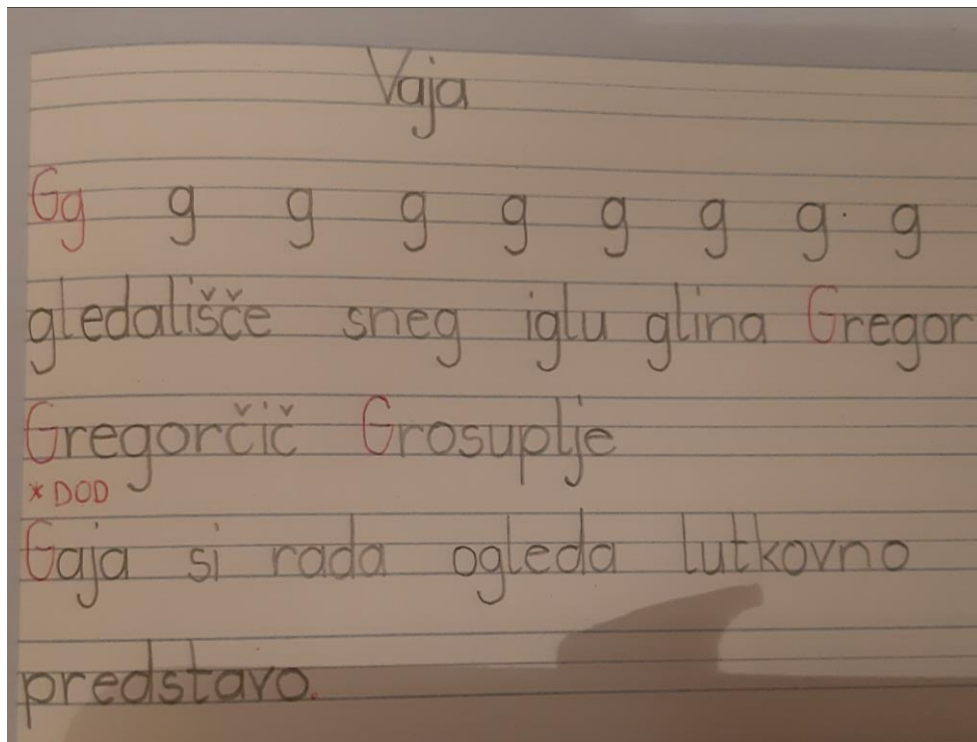 Vaja
Gg g g g g g g g g
gledališče sneg iglu glina Gregor
Gregorčič Grosuplje
* DOD
Gaja si rada ogleda lutkovno
predstavo.